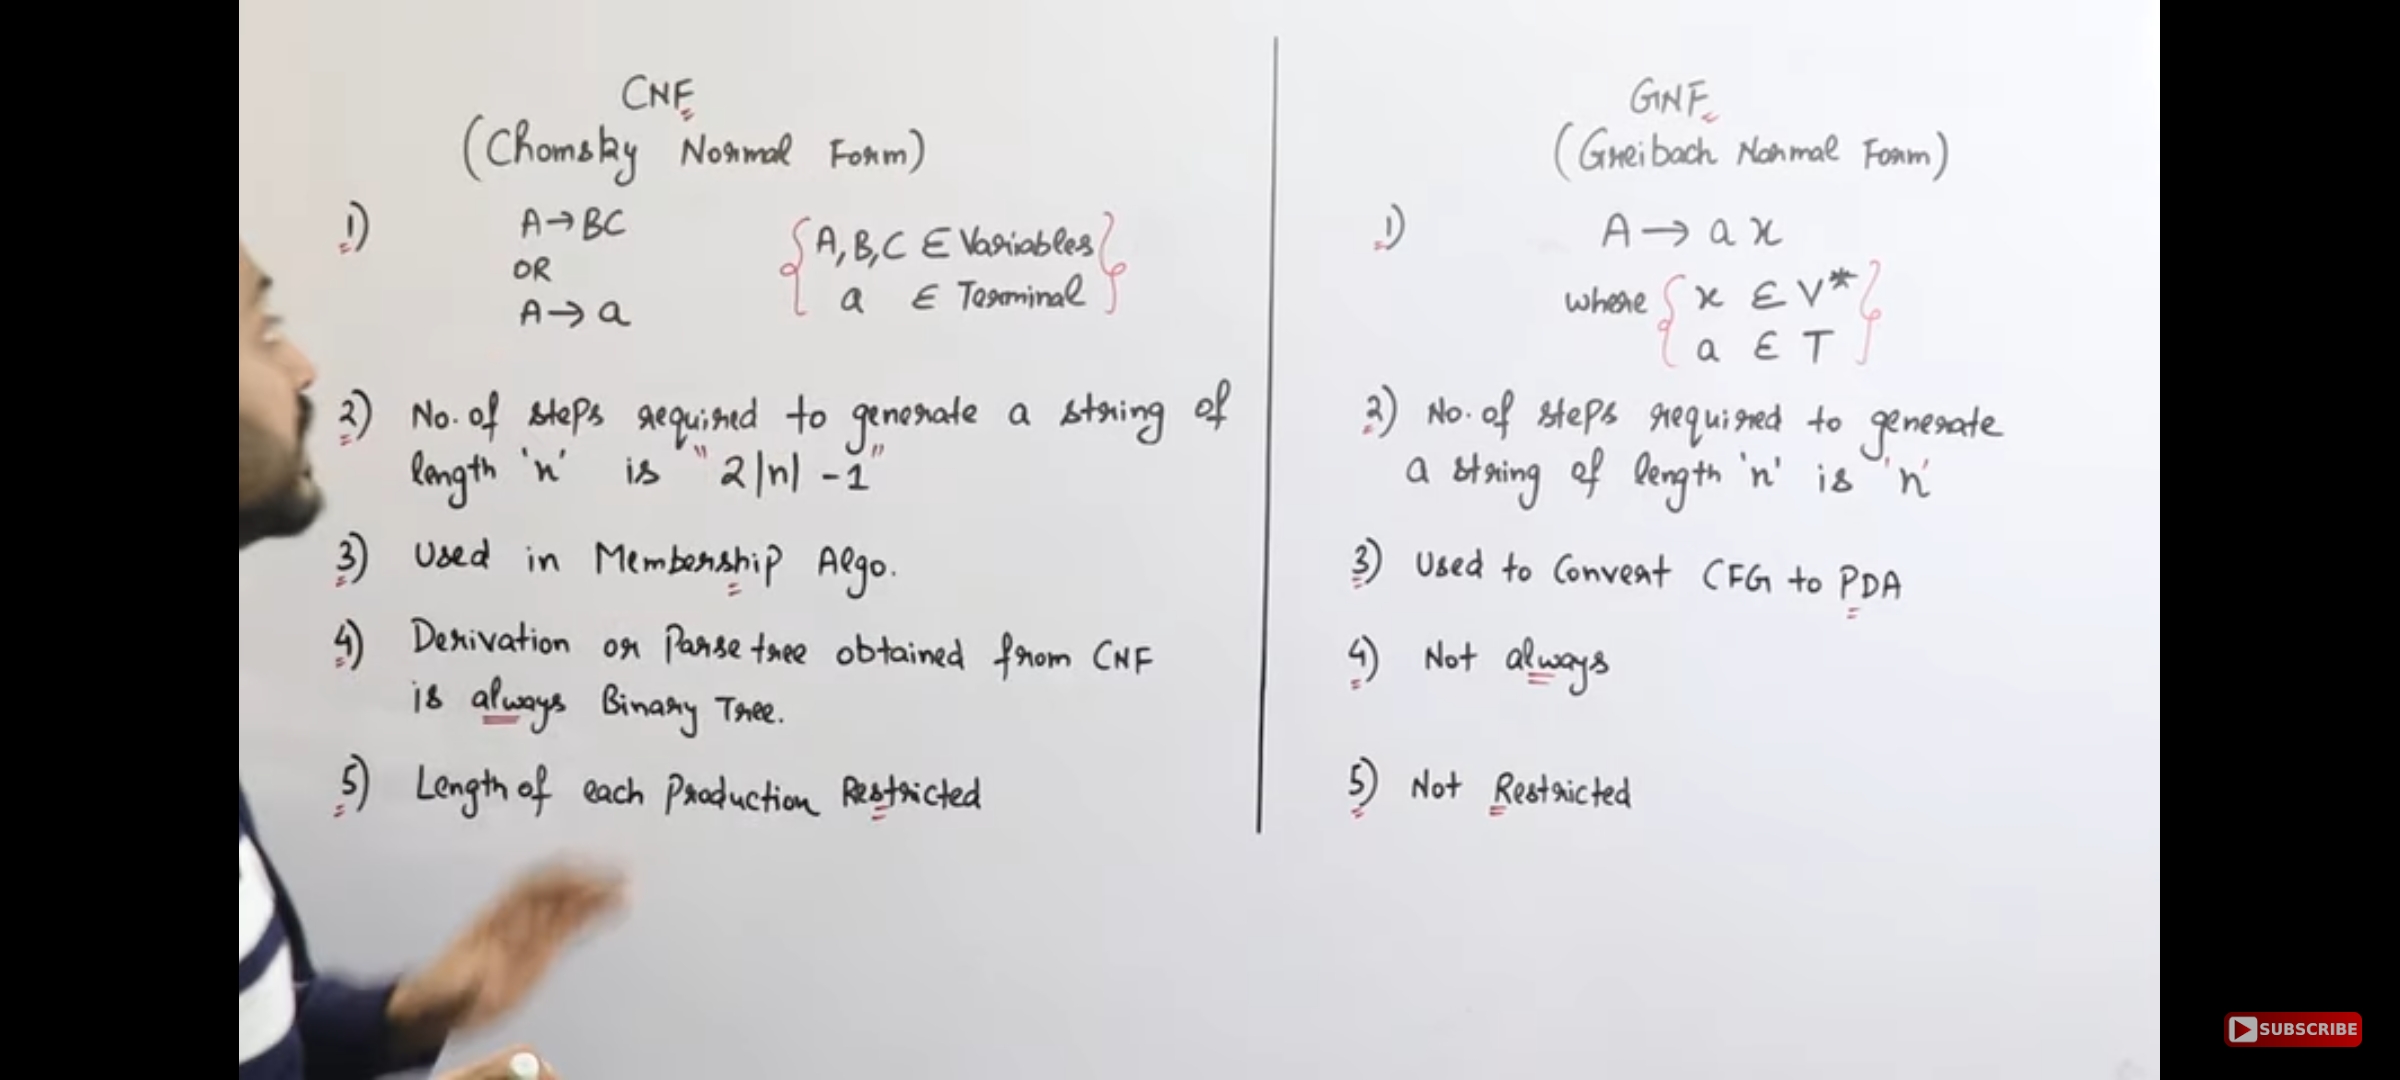 CNF
(Chomsky Normal Form)
1) A→BC
OR
A→a
{A,B,C ∈ Variables
a ∈ Terminal}
2) No. of steps required to generate a string of
length 'n' is "2|n| -1"
3) Used in Membership Algo.
4) Derivation or Parse tree obtained from CNF
is always Binary Tree.
5) Length of each Production Restricted
GNF
(Greibach Normal Form)
1) A → a x
where {x ∈ V*
a ∈ T}
2) No. of steps required to generate
a string of length 'n' is 'n'
3) Used to Convert CFG to PDA
4) Not always
5) Not Restricted
SUBSCRIBE